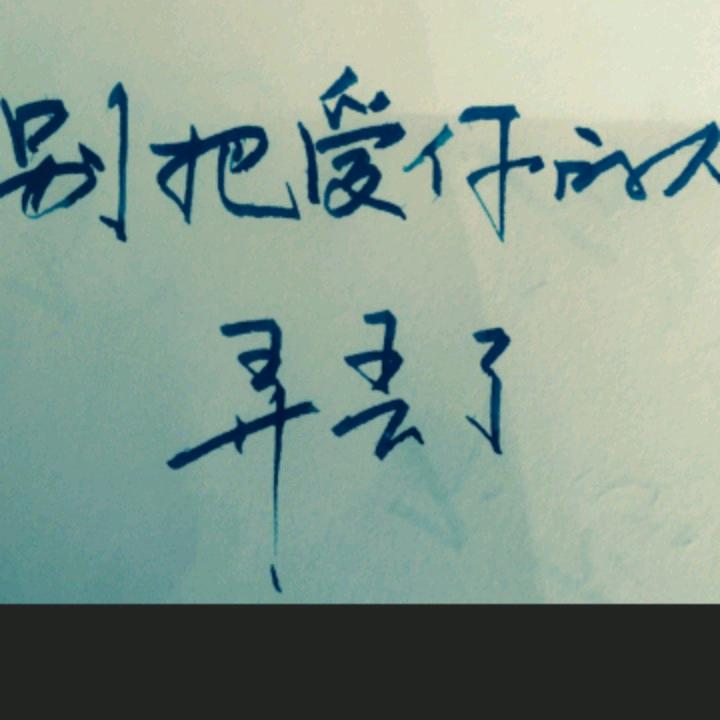 别把爱你的人
弄丢了